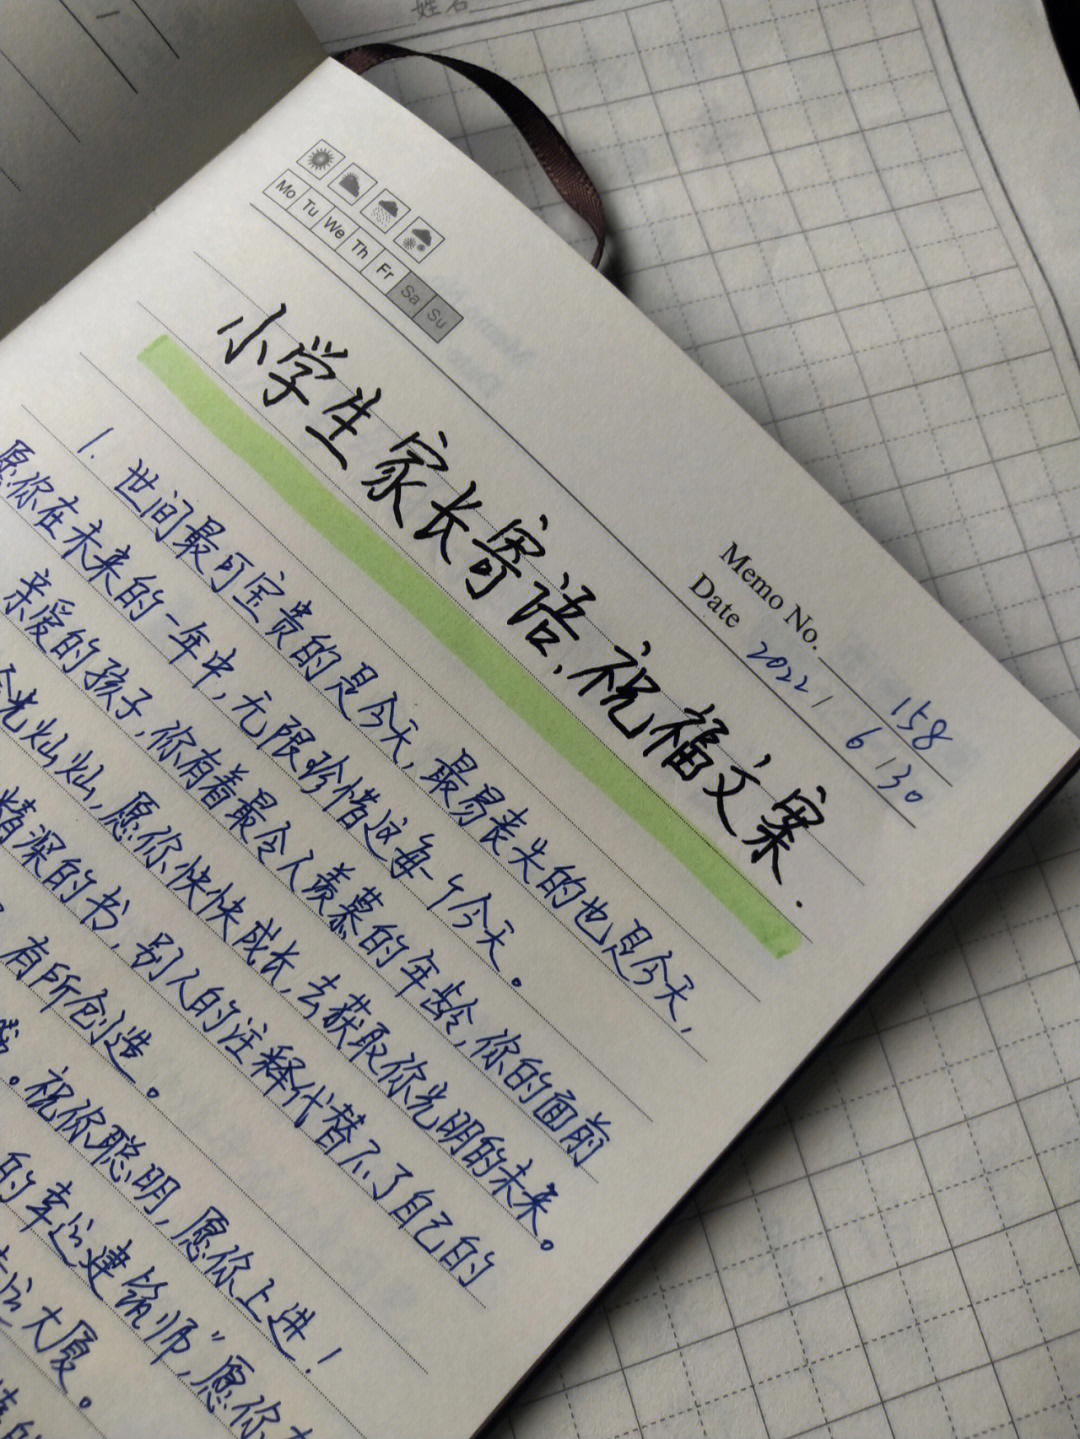 姓名
Mo Tu We Th Fr Sa Su
Memo No. 158
Date 2022 / 6 / 30
小学生家长寄语、祝福文案.
1. 世间最可宝贵的是今天,最易丧失的也是今天,
愿你在未来的一年中,无限珍惜这每个今天。
亲爱的孩子,你有着最令人羡慕的年龄,你的面前
金光灿灿,愿你快快成长,去获取你光明的未来。
精深的书,别人的注释代替不了自己的
有所创造。
祝你聪明,愿你上进!
的幸运建筑师”,愿你
大厦。